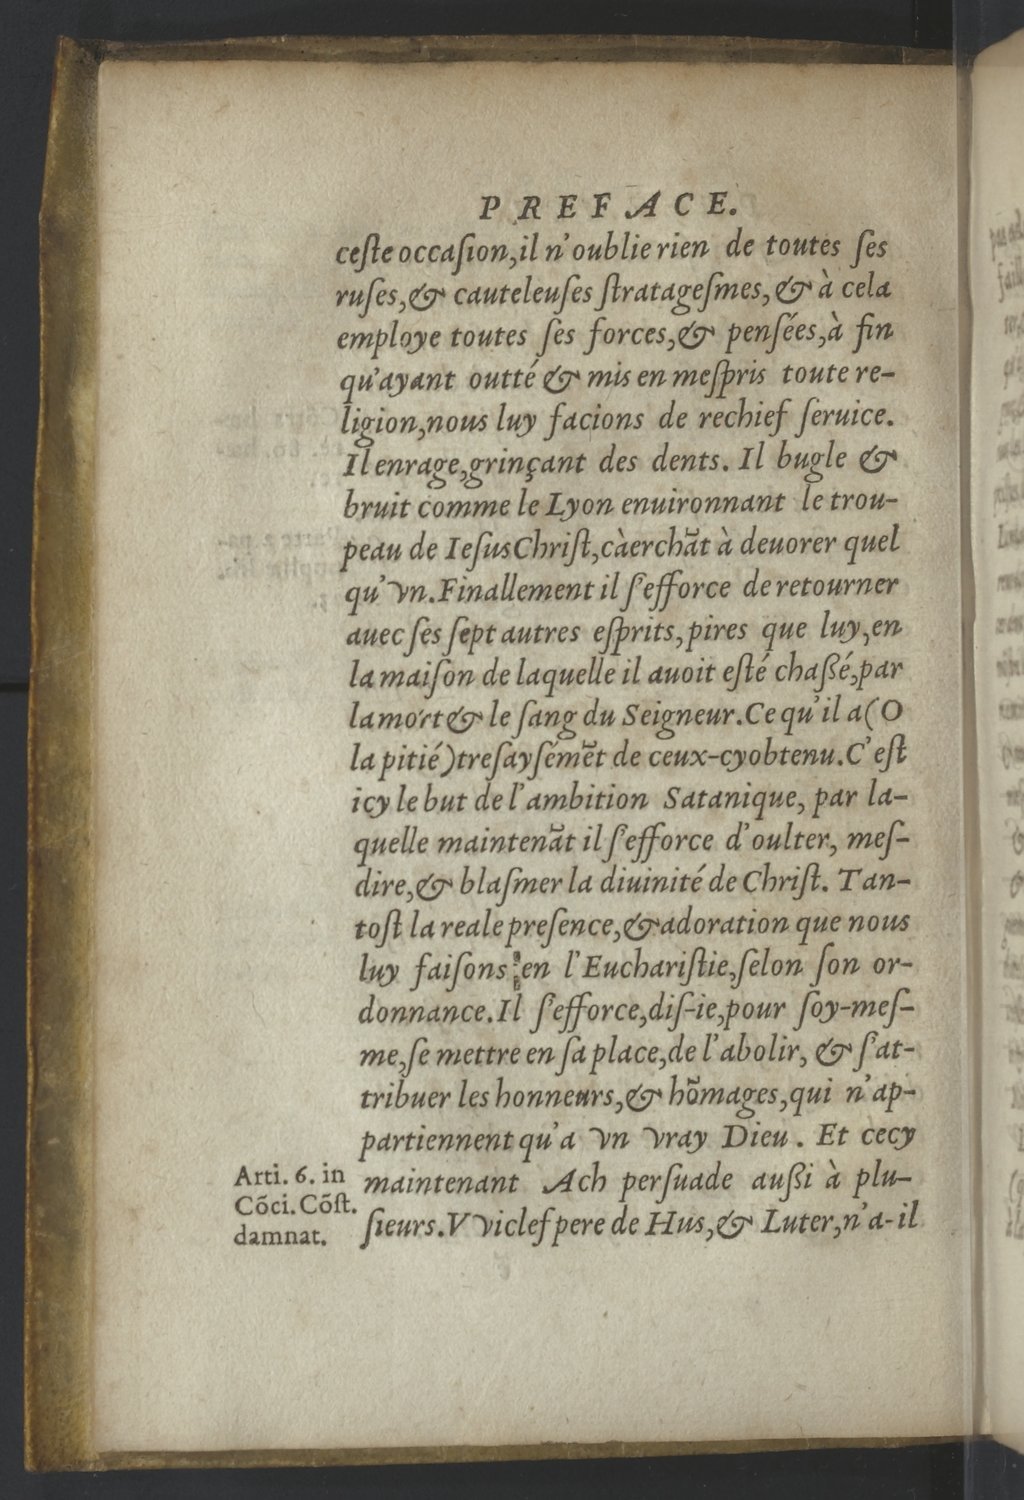 PREFACE.
ceſte occaſion, il n'oublie rien de toutes ſes
ruſes, & cauteleuſes ſtratageſmes, & à cela
employe toutes ſes forces, & penſées, à fin
qu'ayant outté & mis en meſpris toute re-
ligion, nous luy facions de rechief ſeruice.
Il enrage, grinçant des dents. Il bugle &
bruit comme le Lyon enuironnant le trou-
peau de Ieſus Chriſt, càerchãt à deuorer quel
qu'vn. Finallement il ſ'efforce de retourner
auec ſes ſept autres eſprits, pires que luy, en
la maiſon de laquelle il auoit eſté chaßé, par
la mort & le ſang du Seigneur. Ce qu'il a (O
la pitié) treſayſémẽt de ceux-cy obtenu. C'eſt
icy le but de l'ambition Satanique, par la-
quelle maintenãt il ſ'efforce d'oulter, meſ-
dire, & blaſmer la diuinité de Chriſt. Tan-
toſt la reale preſence, & adoration que nous
luy faiſons en l'Euchariſtie, ſelon ſon or-
donnance. Il ſ'efforce, diſ-ie, pour ſoy-meſ-
me, ſe mettre en ſa place, de l'abolir, & ſ'at-
tribuer les honneurs, & hõmages, qui n'ap-
partiennent qu'a vn vray Dieu. Et cecy
maintenant Ach perſuade außi à plu-
ſieurs. VViclef pere de Hus, & Luter, n'a-il
Arti. 6. in
Cõci. Cõſt.
damnat.